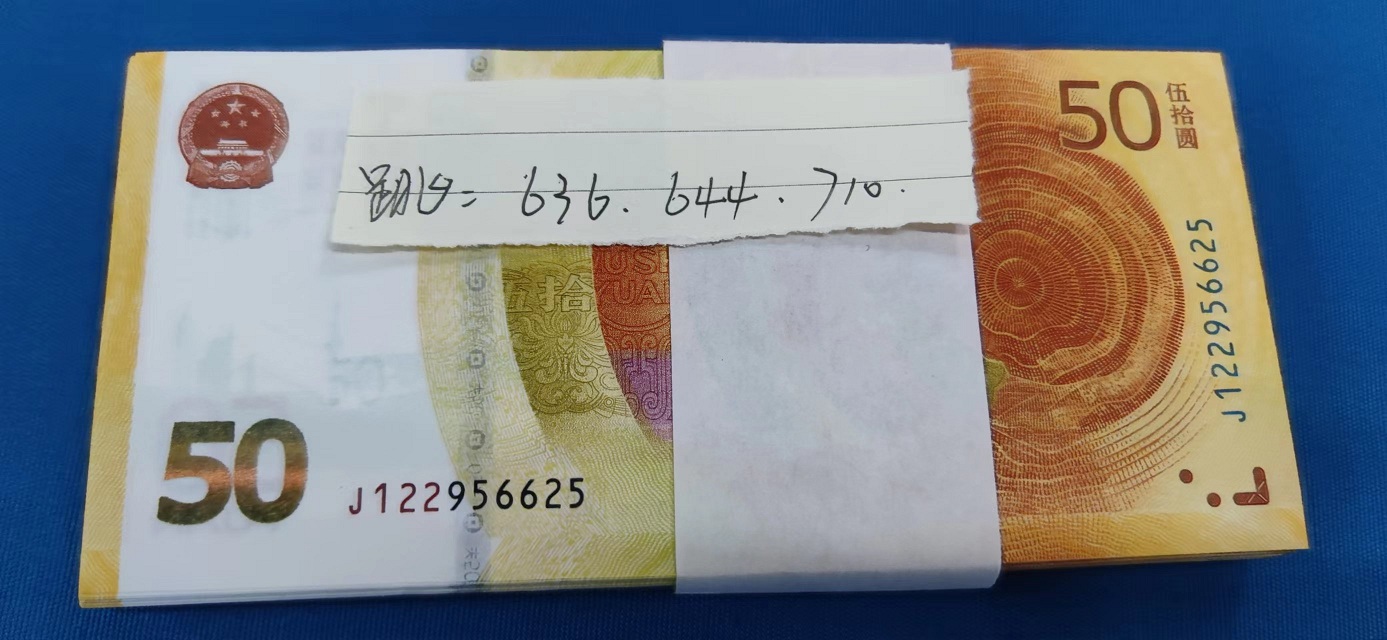 跳号= 636. 644. 710.
50
伍拾圆
J122956625
伍拾
50
J122956625